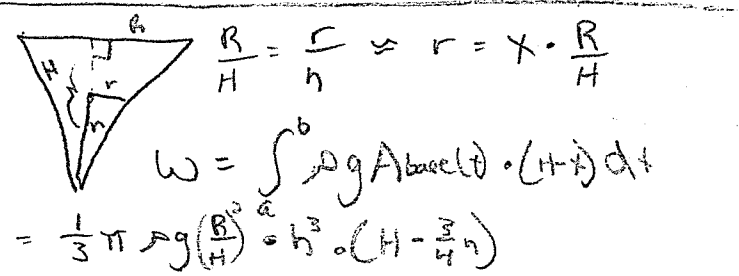 R
H r n
R/H = r/h ≈ r = x · R/H
W = ∫_a^b ρg A base(t) · (H-x) dx
= 1/3 π ρg (R/H)² · h³ · (H - 3/4 h)